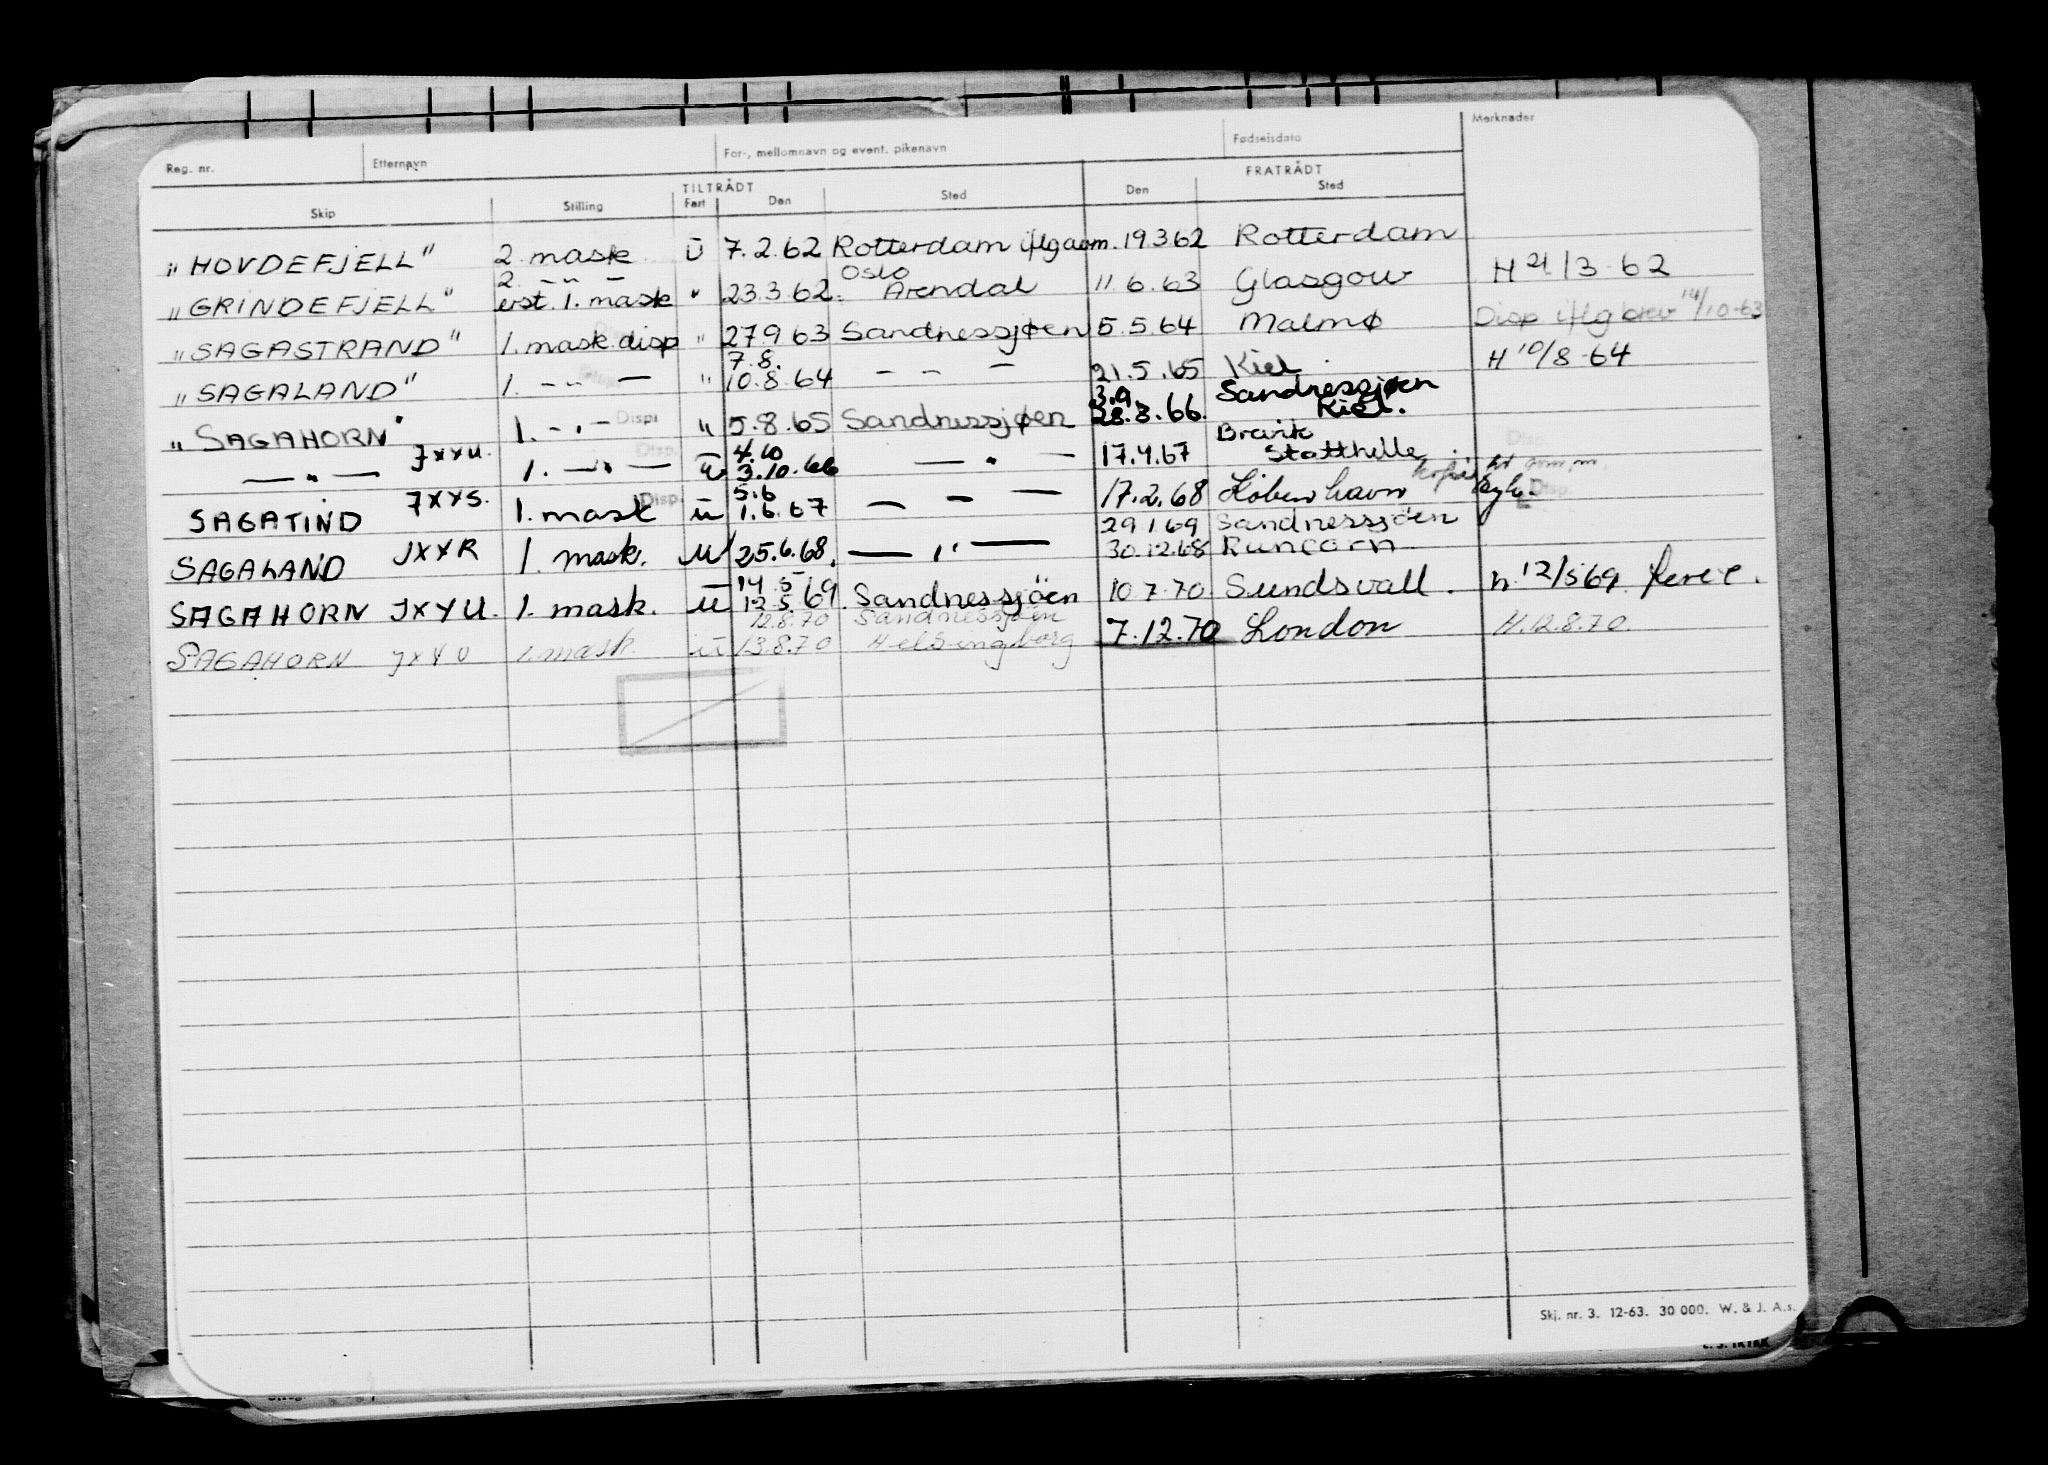 Reg. nr. Etternavn For-, mellomnavn og event. pikenavn Fødselsdato Merknader
TILTRÅDT FRATRÅDT
Skip Stilling Fart Den Sted Den Sted
"HOVDEFJELL" 2. mask ū 7.2.62 Rotterdam iflg aom. 19.3.62 Rotterdam
2. — " — Oslo
"GRINDEFJELL" erst. 1. mask " 23.3.62. Arendal 11 6.63 Glasgow H 21/3-62
"SAGASTRAND" 1. mask disp " 27.9 63 Sandnessjøen 5.5.64 Malmø Disp iflg brev 14/10-63
7.8.
"SAGALAND" 1. — " — " 10.8.64 — — — 21.5.65 Kiel. H 10/8-64
3.9. Sandnessjøen
"SAGAHORN" 1. — " — Disp " 5.8.65 Sandnessjøen 28.8.66. Kiel.
4.10 Brevik
— " — JXYU. 1. — " — Disp. ū 3.10.66 — " — 17.4.67 Statthelle
5.6
SAGATIND JXYS. 1. mask Disp. ū 1.6.67 — — — 17.2.68 København
29.1.69 Sandnessjöen
SAGALAND JXYR 1. mask. u 25.6.68. — " — 30.12.68 Runcorn
14 5
SAGAHORN JXYU. 1. mask. ū 12.5.69. Sandnessjöen 10.7.70 Sundsvall. h. 12/5 69
12.8.70 Sandnessjøen
SAGAHORN JXYU 1. mask. ū 13.8.70 Helsingborg 7.12.70 London H.12.8.70.
Skj. nr. 3. 12-63. 30 000. W. & J. A.s.